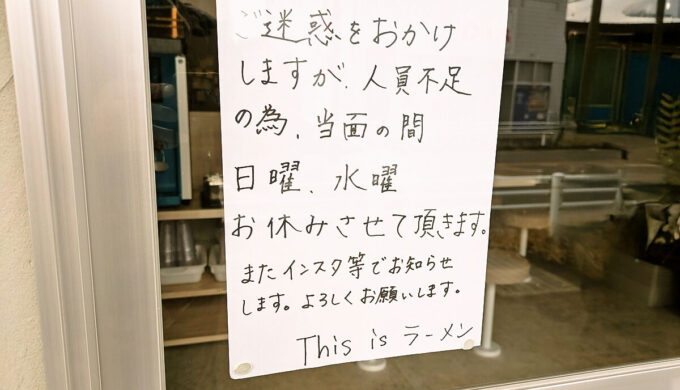 ご迷惑をおかけ
しますが、人員不足
の為、当面の間
日曜、水曜
お休みさせて頂きます。
またインスタ等でお知らせ
します。よろしくお願いします。
This is ラーメン